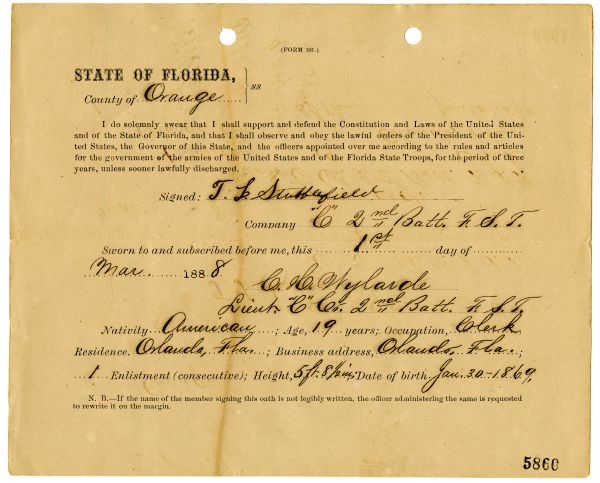 (FORM 101.)
STATE OF FLORIDA,
ss
County of Orange
I do solemnly swear that I shall support and defend the Constitution and Laws of the United States
and of the State of Florida, and that I shall observe and obey the lawful orders of the President of the Uni-
ted States, the Governor of this State, and the officers appointed over me according to the rules and articles
for the government of the armies of the United States and of the Florida State Troops, for the period of three
years, unless sooner lawfully discharged.
Signed: T. L. Stubblefield
Company "C" 2nd Batt. F. S. T.
Sworn to and subscribed before me, this 1st day of
Mar. 1888
C. H. Wylarde
Lieut. "C" Co. 2nd Batt. F. S. T.
Nativity American; Age, 19 years; Occupation, Clerk
Residence. Orlando, Fla.; Business address, Orlando, Fla.;
1 Enlistment (consecutive); Height, 5 ft. 8½ in. Date of birth Jan. 30-1869
N. B.—If the name of the member signing this oath is not legibly written, the officer administering the same is requested
to rewrite it on the margin.
5860